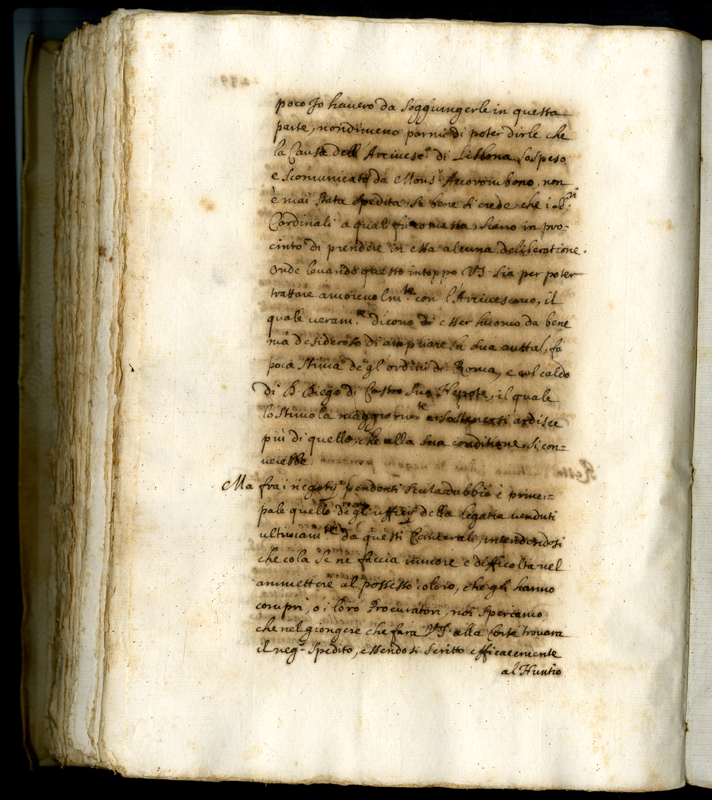 poco Io haverò da soggiungerle in questa
parte, nondimeno parmi di poter dirle che
la Causa dell'Arcivesc.º di Lisbona sospeso
e scomunicato da Mons.r Accorombono, non
è mai stata spedita, se bene si crede che i SS.ri
Cardinali a quali fù comessa siano in pro-
cinto di prendere in essa alcuna deliberatione.
Onde levando questo intoppo V.S. sia per poter
trattare amorevolm.te con l'Arcivescovo, il
quale veram.te dicono di esser huomo da bene
mà desideroso di ampliare la sua auttà, fa
poca stima de gl'ordini di Roma, e col caldo
di D. Diego di Castro suo Nepote, il quale
lo stimola maggiorm.te ardisce
più di quello che alla sua conditione si con-
verebbe.
Ma frà i negotij pendenti senza dubbio è princi-
pale quello de gl'uffitij della legatia venduti
ultimam.te da questi Camerale, intendendosi
che colà se ne faccia rumore e difficoltà nel
ammettere al possesso coloro, che gli hanno
compri, o i loro Procuratori, noi speriamo
che nel giongere che farà V.S. alla Corte trovarà
il neg.º spedito, essendosi scritto efficacemente
al Nuntio